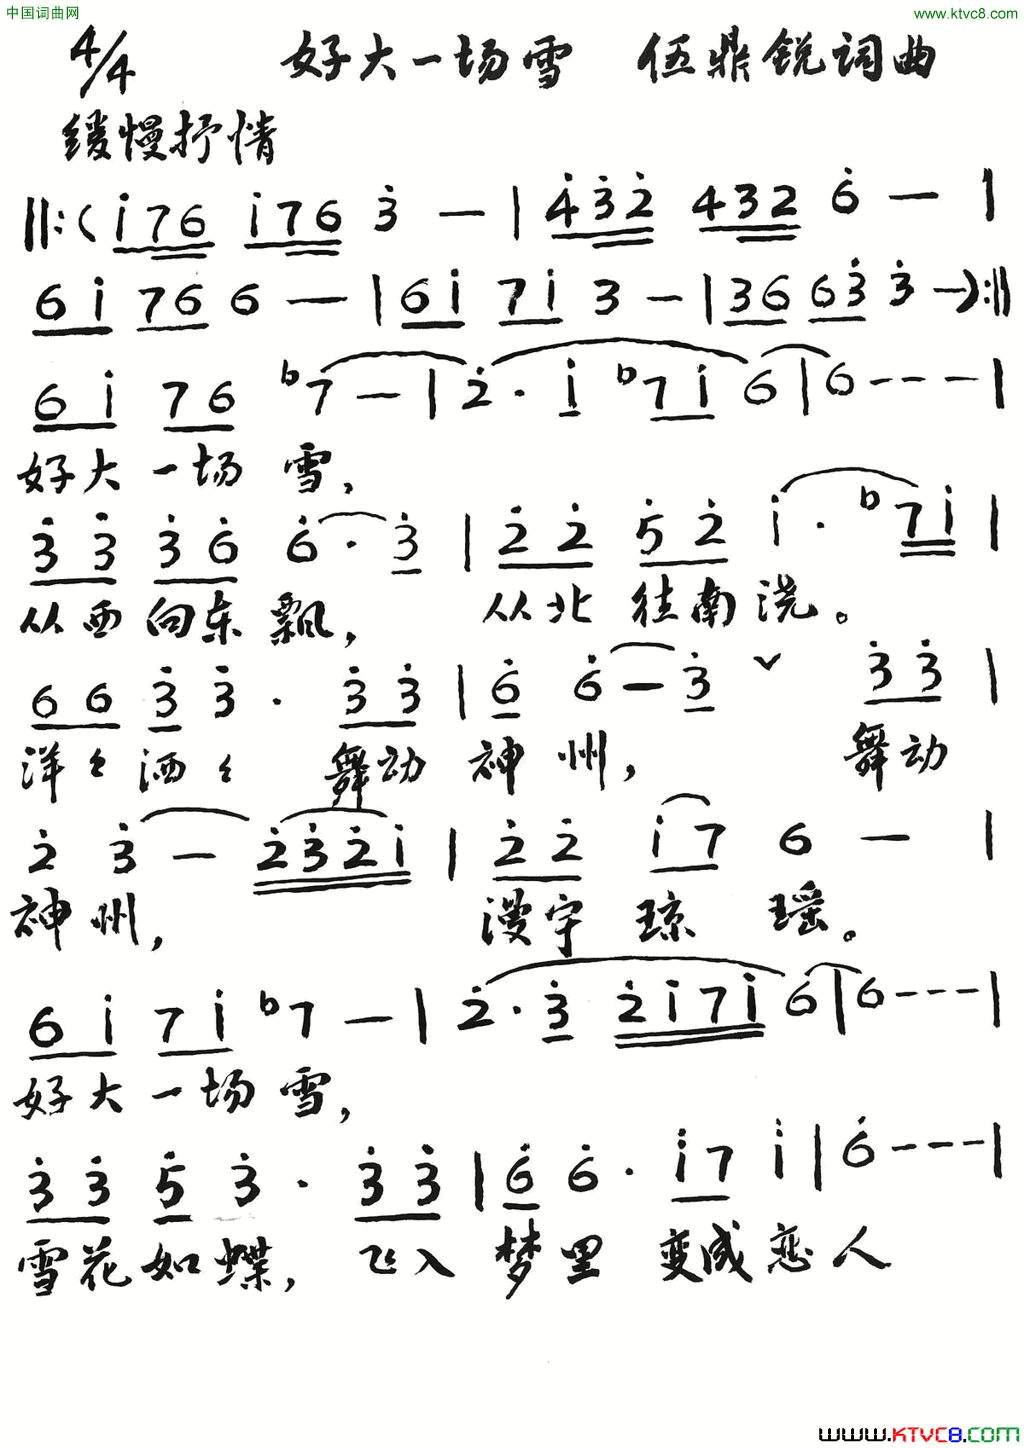 中国词曲网 www.ktvc8.com
4/4 好大一场雪 伍鼎锐词曲
缓慢抒情
‖:( i̇76 i̇76 3̇ — | 4̇3̇2̇ 432 6̇ — |
6i̇ 76 6 — | 6i̇ 7i̇ 3 — | 36 63̇ 3̇ — ):‖
6i̇ 76 ♭7 — | 2̇· i̇ ♭7i̇ 6 | 6 - - - |
好大一场雪，
3̇3̇ 3̇6̇ 6̇· 3̇ | 2̇2̇ 5̇2̇ i̇· ♭7i̇ |
从西向东飘， 从北往南浇。
66 3̇ 3̇· 3̇3̇ | 6̇ 6̇ — 3̇ ˅ 3̇3̇ |
洋々洒々 舞动神州， 舞动
2̇ 3̇ — 2̇3̇2̇i̇ | 2̇2̇ i̇7 6 — |
神州， 漫宇琼瑶。
6i̇ 7i̇ ♭7 — | 2̇· 3̇ 2̇i̇7i̇ 6̇ | 6̇ - - - |
好大一场雪，
3̇3̇ 5̇ 3̇· 3̇3̇ | 6̇ 6̇· i̇7 i̇ | 6̇ - - - |
雪花如蝶， 飞入梦里变成恋人
www.KTVC8.com